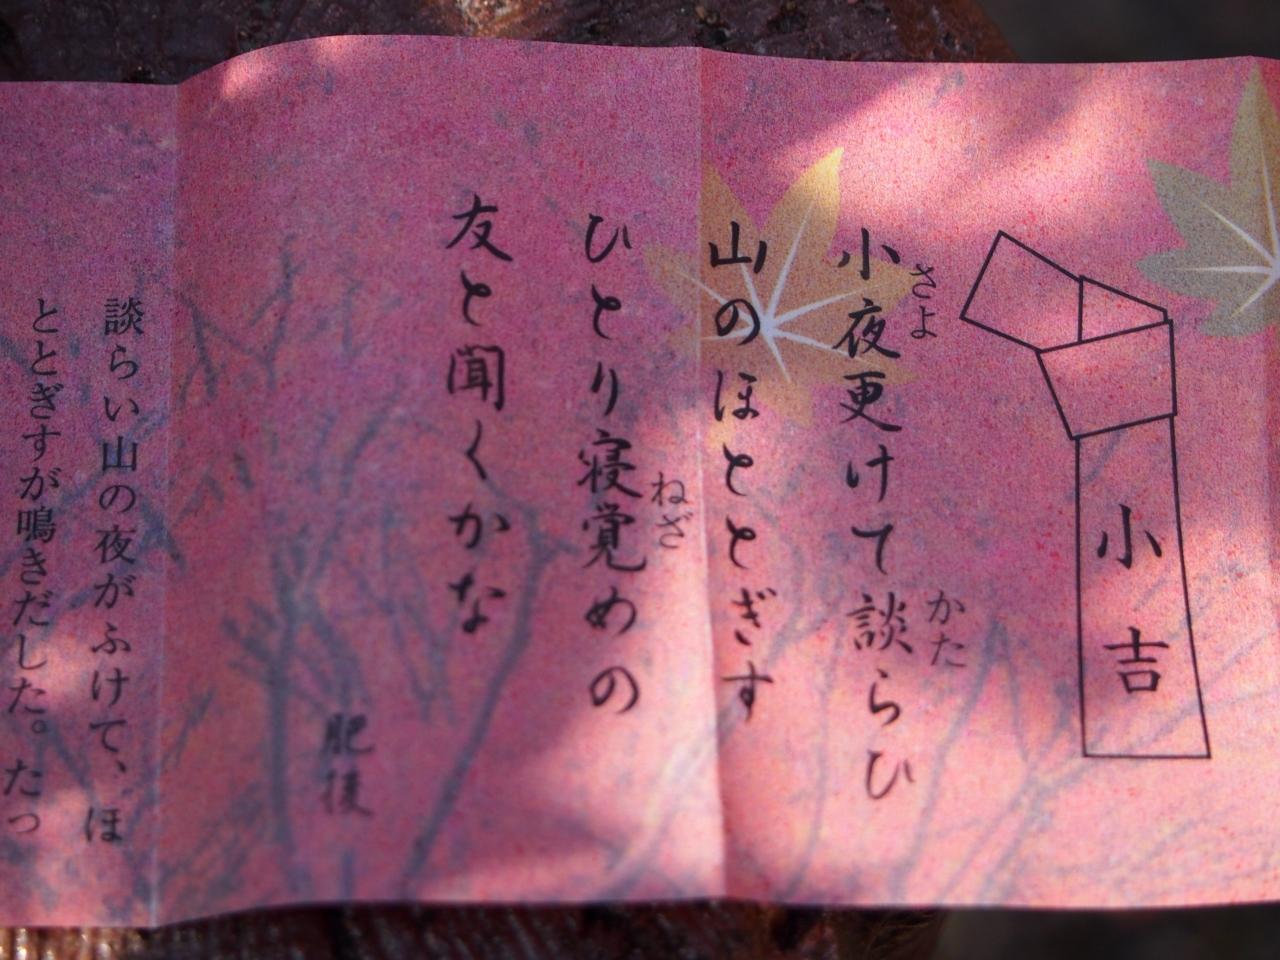 小吉
小夜更けて談らひ
さよ
かた
山のほととぎす
ひとり寝覚めの
ねざ
友と聞くかな
肥後
談らい山の夜がふけて、ほ
ととぎすが鳴きだした。たっ